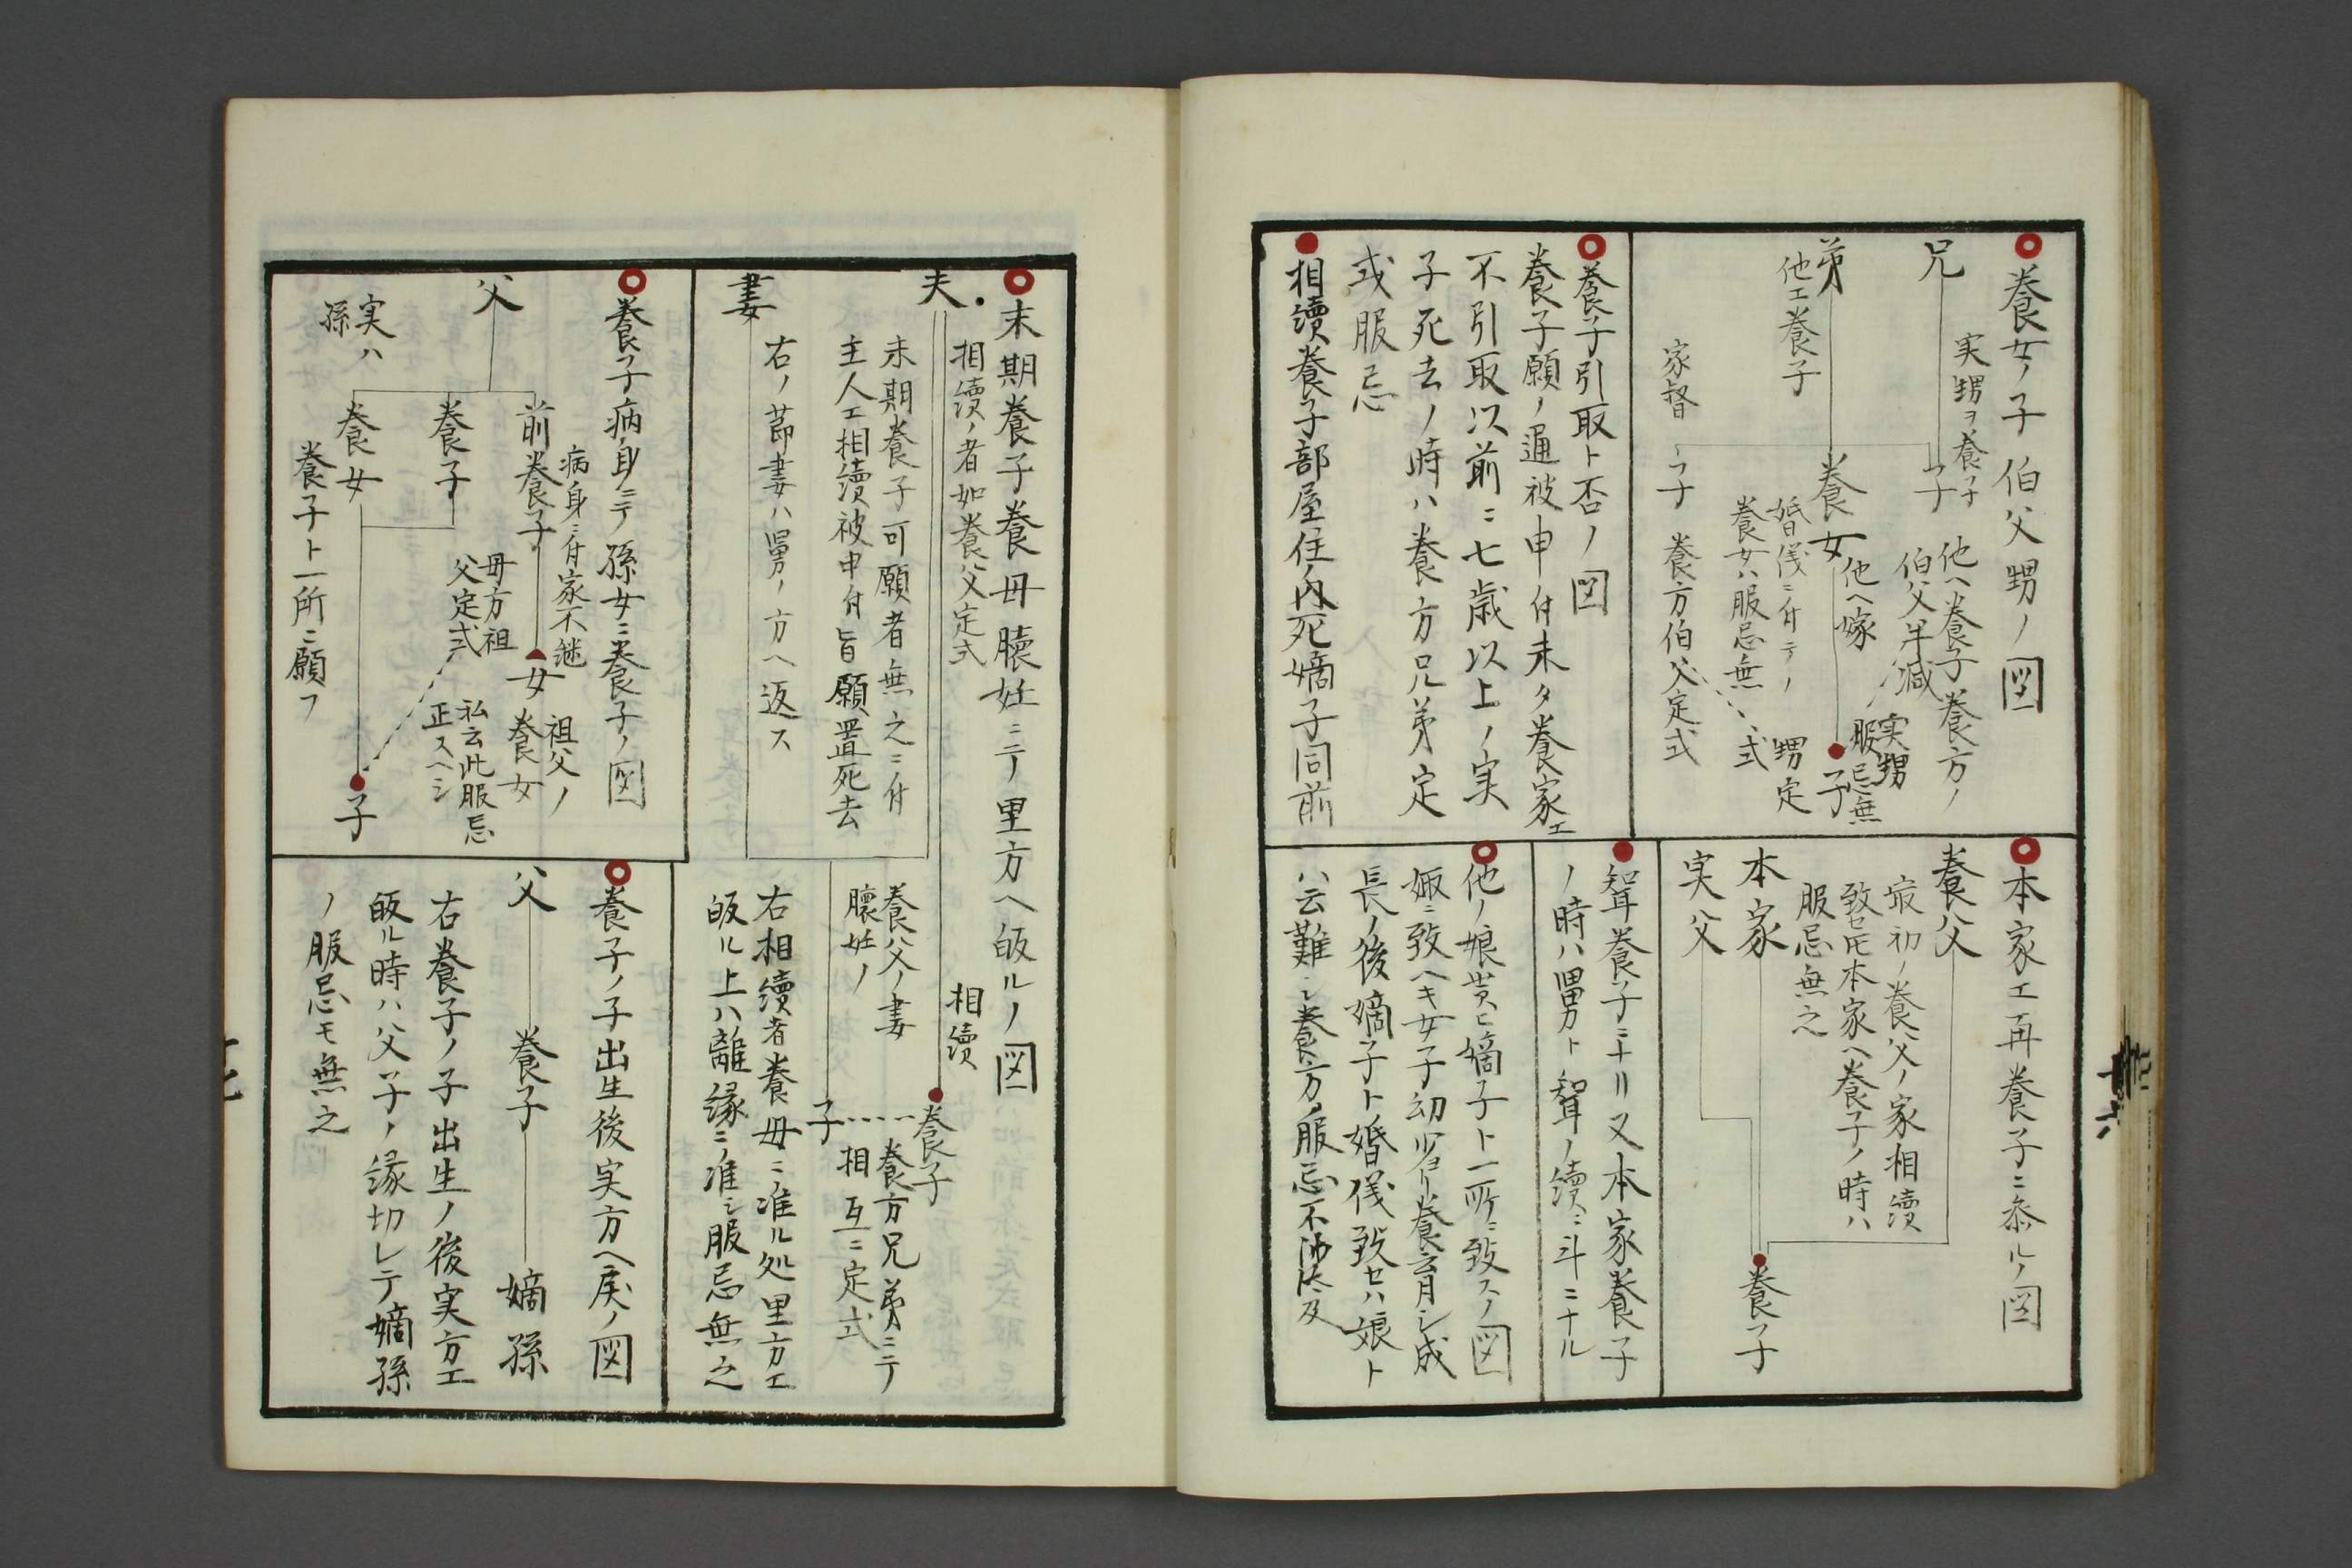 養女ノ子伯父甥ノ図
兄
実甥ヲ養子
子
他ヘ養子養方ノ
伯父半減
弟
他エ養子
養女
他ヘ嫁
実甥
服忌無
子
婚儀ニ付テノ
養女ハ服忌無
甥定
式
家督
子
養方伯父定式
養子引取ト否ノ図
養子願ノ通被申付未タ養家エ
不引取以前ニ七歳以上ノ実
子死去ノ時ハ養方兄弟定
式服忌
相續養子部屋住ノ内死嫡子同前
本家エ再養子ニ参ルノ図
養父
最初ノ養父ノ家相續
致セ𪜈本家ヘ養子ノ時ハ
服忌無之
本家
実父
養子
聟養子ニナリ又本家養子
ノ時ハ舅ト聟ノ續ニ斗ニナル
他ノ娘貰ヒ嫡子ト一所ニ致スノ図
娵ニ致ヘキ女子幼少ヨリ養育シ成
長ノ後嫡子ト婚儀致セハ娘ト
ハ云難シ養方ノ服忌不沙汰及
末期養子養母懐妊ニテ里方ヘ皈ルノ図
夫
相續ノ者如養父定式
末期養子可願者無之ニ付
主人エ相續被申付旨願置死去
妻
右ノ節妻ハ舅ノ方ヘ返ス
相續
養子
養父ノ妻
懐妊ノ
子
養方兄弟ニテ
相互ニ定式
右相續者養母ニ准ル処里方エ
皈ル上ハ離縁ニ准シ服忌無之
養子病身ニテ孫女ニ養子ノ図
父
前養子
病身ニ付家不継
女
祖父ノ
養女
養子
母方祖
父定式
私云此服忌
正スヘシ
養女
実ハ
孫
養子ト一所ニ願フ
子
養子ノ子出生後実方ヘ戻ノ図
父
養子
嫡孫
右養子ノ子出生ノ後実方エ
皈ル時ハ父子ノ縁切レテ嫡孫
ノ服忌モ無之